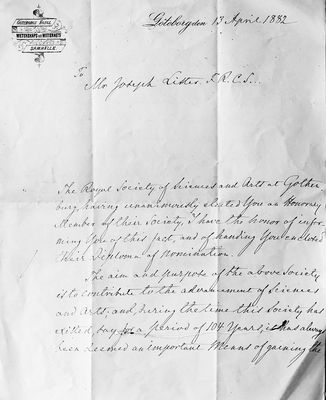 GÖTEBORGS KUNGL.
WETENSKAPS och WITTERHETS
SAMHÄLLE
Göteborg den 13 April 1882
To
Mr Joseph Lister F.R.C.S..
The Royal Society of Sciences and Arts at Gothen
burg having unanimously elected You an Honorary
Member of their Society, I have the honor of infor-
ming You of this fact, and of handing You enclosed
their Diploma of nomination.
The aim and purpose of the above Society
is to contribute to the advancement of Sciences
and Arts; and, during the time this Society has
existed, say for a period of 104 Years, it has always
been deemed an important Means of gaining the